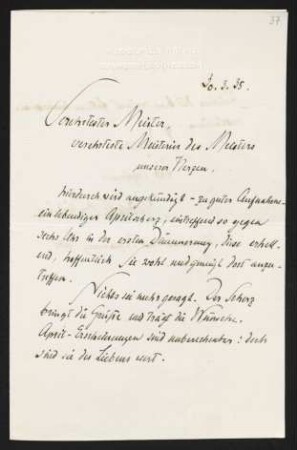 37
30. 3. 35.
Verehrtester Meister,
verehrteste Meisterin des Meisters
unserer Herzen.
hierdurch wird angekündigt – zu guter Aufnahme –
ein lebendiger Aprilscherz, eintreffend so gegen
sechs Uhr in der ersten Dämmerung, diese erhell-
end, hoffentlich Sie wohl und geneigt dort anzu-
treffen.
Nichts sei mehr gesagt. Der Scherz
bringt die Grüße und trägt die Wünsche.
April-Erscheinungen sind unberechenbar: doch
sind sie des Liebens wert.